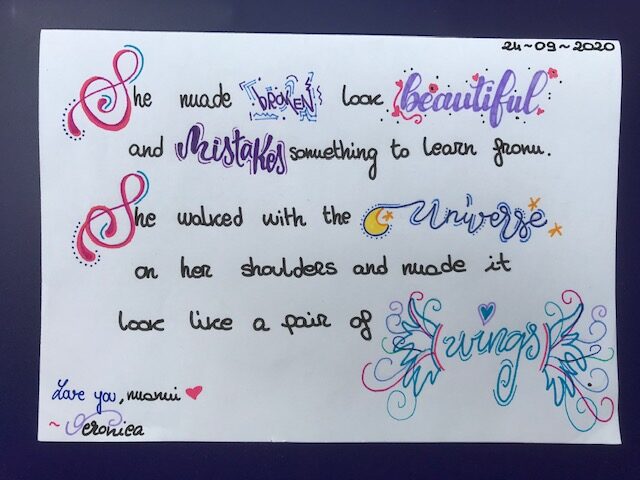 24~09~2020
She made broken look beautiful
and mistakes something to learn from.
She walked with the universe
on her shoulders and made it
look like a pair of wings
Love you, mami
~ Veronica